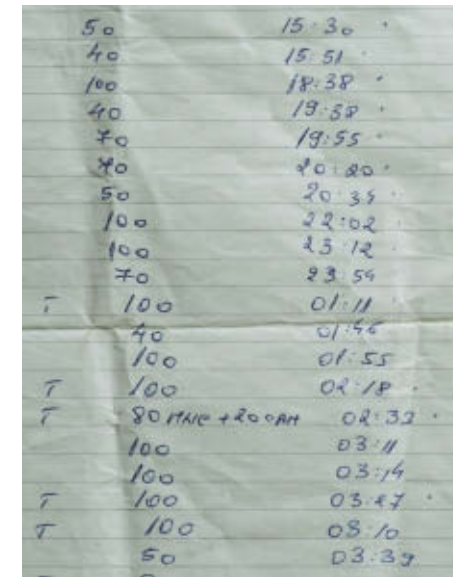 50 15:30
40 15:51
100 18:38
40 19:38
70 19:55
70 20:20
50 20:35
100 22:02
100 23:12
70 23:54
T 100 01:11
40 01:46
100 01:55
T 100 02:18
T 80 02:33
100 03:11
100 03:14
T 100 03:27
T 100 08:10
50 03:39